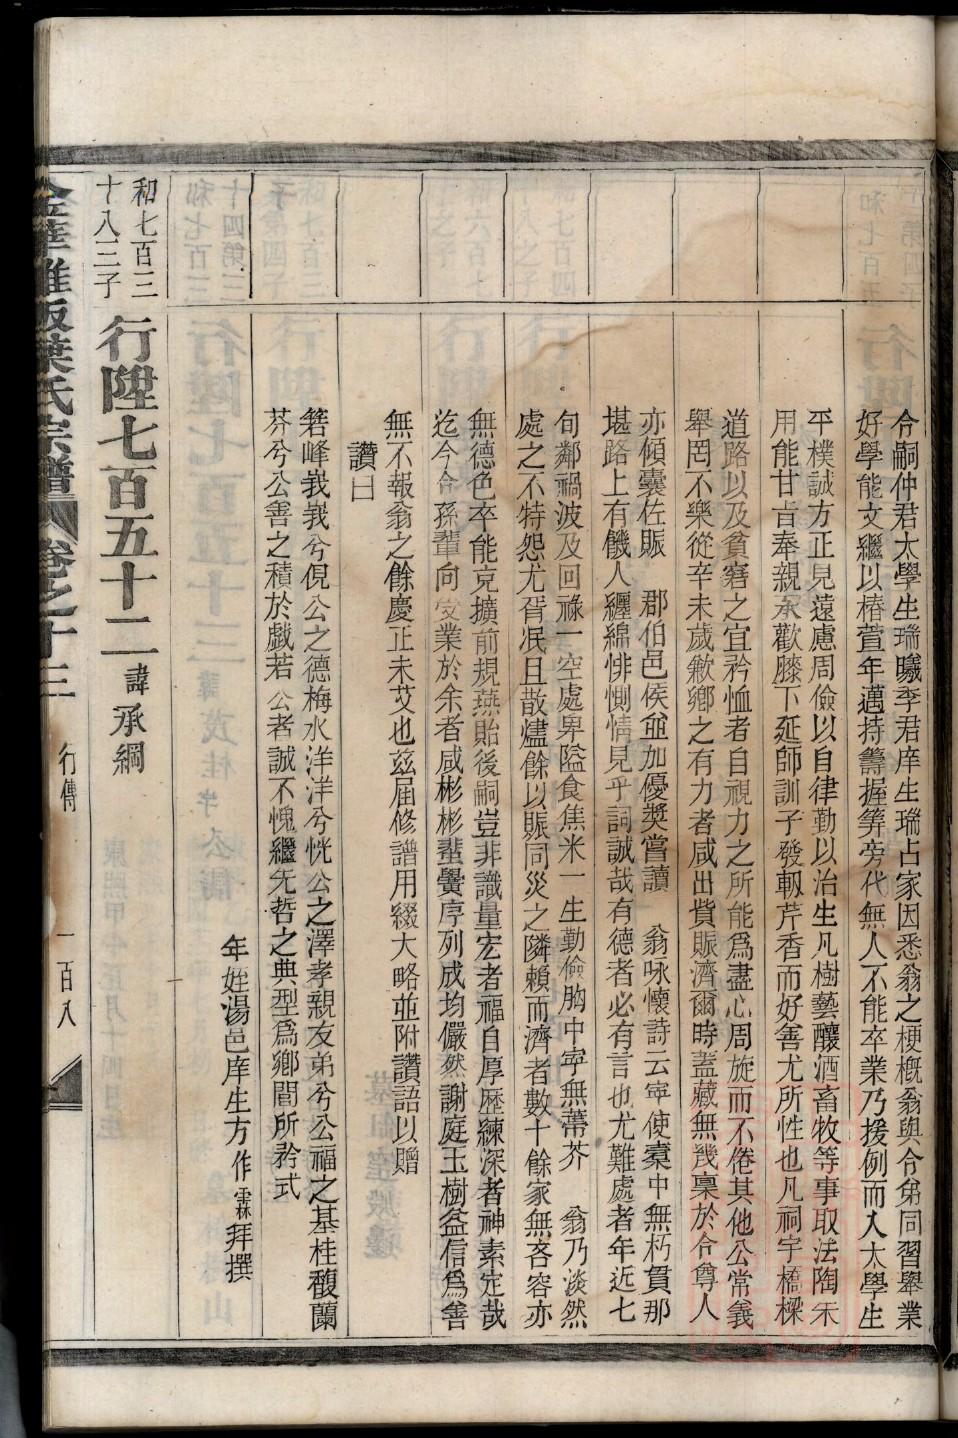 令嗣仲君太學生瑞曦季君庠生瑞占家因悉翁之梗概翁與令弟同習舉業
好學能文繼以椿萱年邁持籌握筭旁代無人不能卒業乃援例而入太學生
平樸誠方正見遠慮周儉以自律勤以治生凡樹藝釀酒畜牧等事取法陶朱
用能甘旨奉親承歡膝下延師訓子發軔芹香而好善尤所性也凡祠宇橋樑
道路以及貧窘之宜矜恤者自視力之所能爲盡心周旋而不倦其他公常義
舉罔不樂從辛未歲歉鄉之有力者咸出貲賑濟爾時蓋藏無幾稟於令尊人
亦傾囊佐賑 郡伯邑侯並加優奬嘗讀 翁咏懷詩云寜使槖中無朽貫那
堪路上有饑人纒綿悱惻情見乎詞誠哉有德者必有言也尤難處者年近七
旬鄰禍波及回祿一空處卑隘食焦米一生勤儉胸中寜無蒂芥 翁乃淡然
處之不特怨尤胥泯且散燼餘以賑同災之隣賴而濟者數十餘家無吝容亦
無德色卒能克擴前規燕貽後嗣豈非識量宏者福自厚歷練深者神素定哉
迄今令孫輩向受業於余者咸彬彬蜚黌序列成均儼然謝庭玉樹益信爲善
無不報翁之餘慶正未艾也玆屆修譜用綴大略並附讚語以贈
讚曰
箬峰峩峩兮俔公之德梅水洋洋兮恍公之澤孝親友弟兮公福之基桂馥蘭
芬兮公善之積於戲若公者誠不愧繼先哲之典型爲鄉閭所矜式
年姪湯邑庠生方作霖拜撰
和七百三
十八三子
行陞七百五十二 諱承綱
金華雅畈葉氏宗譜 卷之十三 行傳 一百八